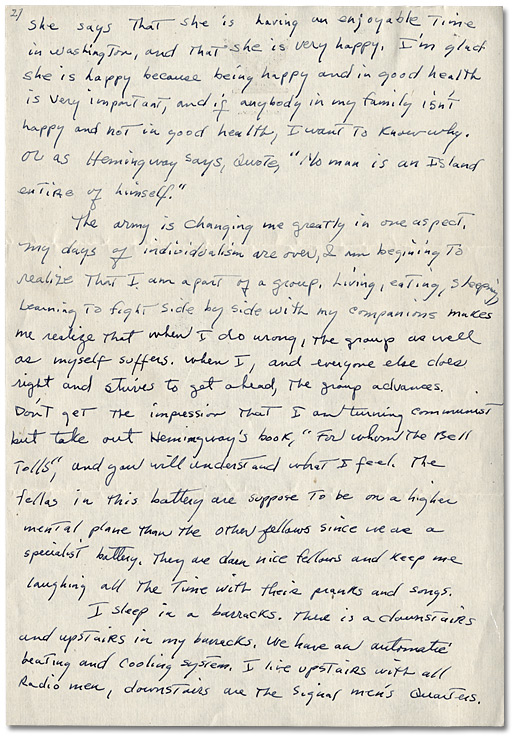 2/
She says That she is having an enjoyable Time
in Washington, and That she is very happy. I'm glad
she is happy because being happy and in good health
is very important, and if anybody in my family isn't
happy and not in good health, I want To Know why.
Or as Hemingway says, Quote, "No man is an Island
entire of himself."
The army is changing me greatly in one aspect.
My days of individualism are over, I am begining To
realize That I am apart of a group. Living, eating, sleeping,
Learning To fight side by side with my companions makes
me realize that when I do wrong, The group as well
as myself suffers. When I, and everyone else does
right and strives to get ahead, The group advances.
Don't get The impression That I am turning communist
but take out Hemingway's book, "For whom The Bell
Tolls", and you will understand what I feel. The
fellas in This battery are suppose To be on a higher
mental plane Than the other fellows since we are a
specialist battery. They are darn nice fellows and keep me
laughing all The Time with their pranks and songs.
I sleep in a barracks. There is a downstairs
and upstairs in my barracks. We have an automatic
heating and cooling system. I live upstairs with all
Radio men, downstairs are The Signal men's Quarters.